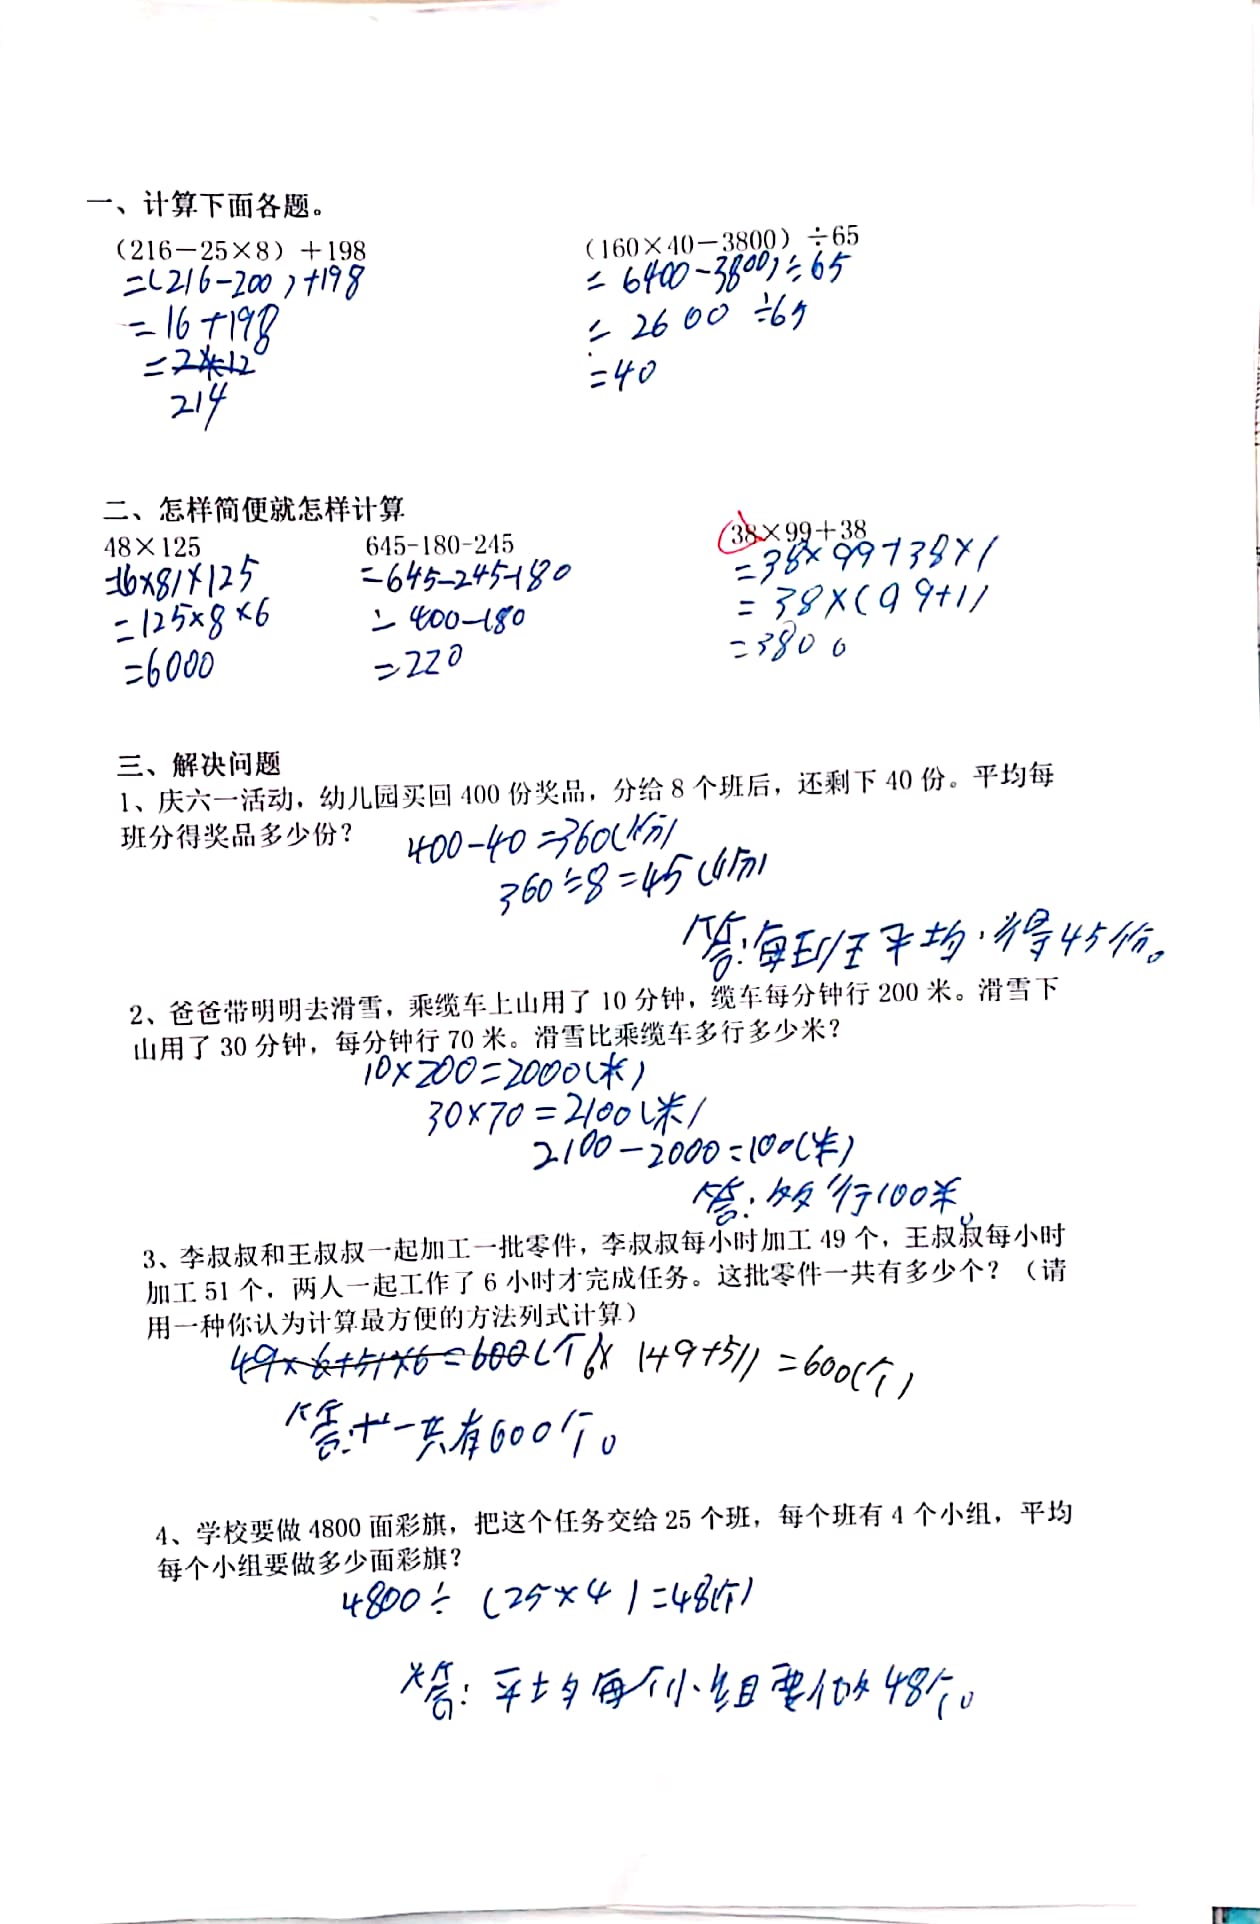 一、计算下面各题。
(216－25×8)＋198 (160×40－3800)÷65
=(216-200)+198 = 6400-3800)÷65
=16+198 = 2600÷65
= =40
214
二、怎样简便就怎样计算
48×125 645-180-245 38×99＋38
=(6×8)×125 =645-245-180 =38×99+38×1
=125×8×6 =400-180 =38×(99+1)
=6000 =220 =3800
三、解决问题
1、庆六一活动，幼儿园买回 400 份奖品，分给 8 个班后，还剩下 40 份。平均每
班分得奖品多少份？
400-40=360(份)
360÷8=45(份)
答:每班平均分得45份。
2、爸爸带明明去滑雪，乘缆车上山用了 10 分钟，缆车每分钟行 200 米。滑雪下
山用了 30 分钟，每分钟行 70 米。滑雪比乘缆车多行多少米？
10×200=2000(米)
30×70=2100(米)
2100-2000=100(米)
答:多行100米。
3、李叔叔和王叔叔一起加工一批零件，李叔叔每小时加工 49 个，王叔叔每小时
加工 51 个，两人一起工作了 6 小时才完成任务。这批零件一共有多少个？（请
用一种你认为计算最方便的方法列式计算）
49×6+51×6=600(个) 6×(49+51)=600(个)
答:一共有600个。
4、学校要做 4800 面彩旗，把这个任务交给 25 个班，每个班有 4 个小组，平均
每个小组要做多少面彩旗？
4800÷(25×4)=48(个)
答:平均每个小组要做48个。